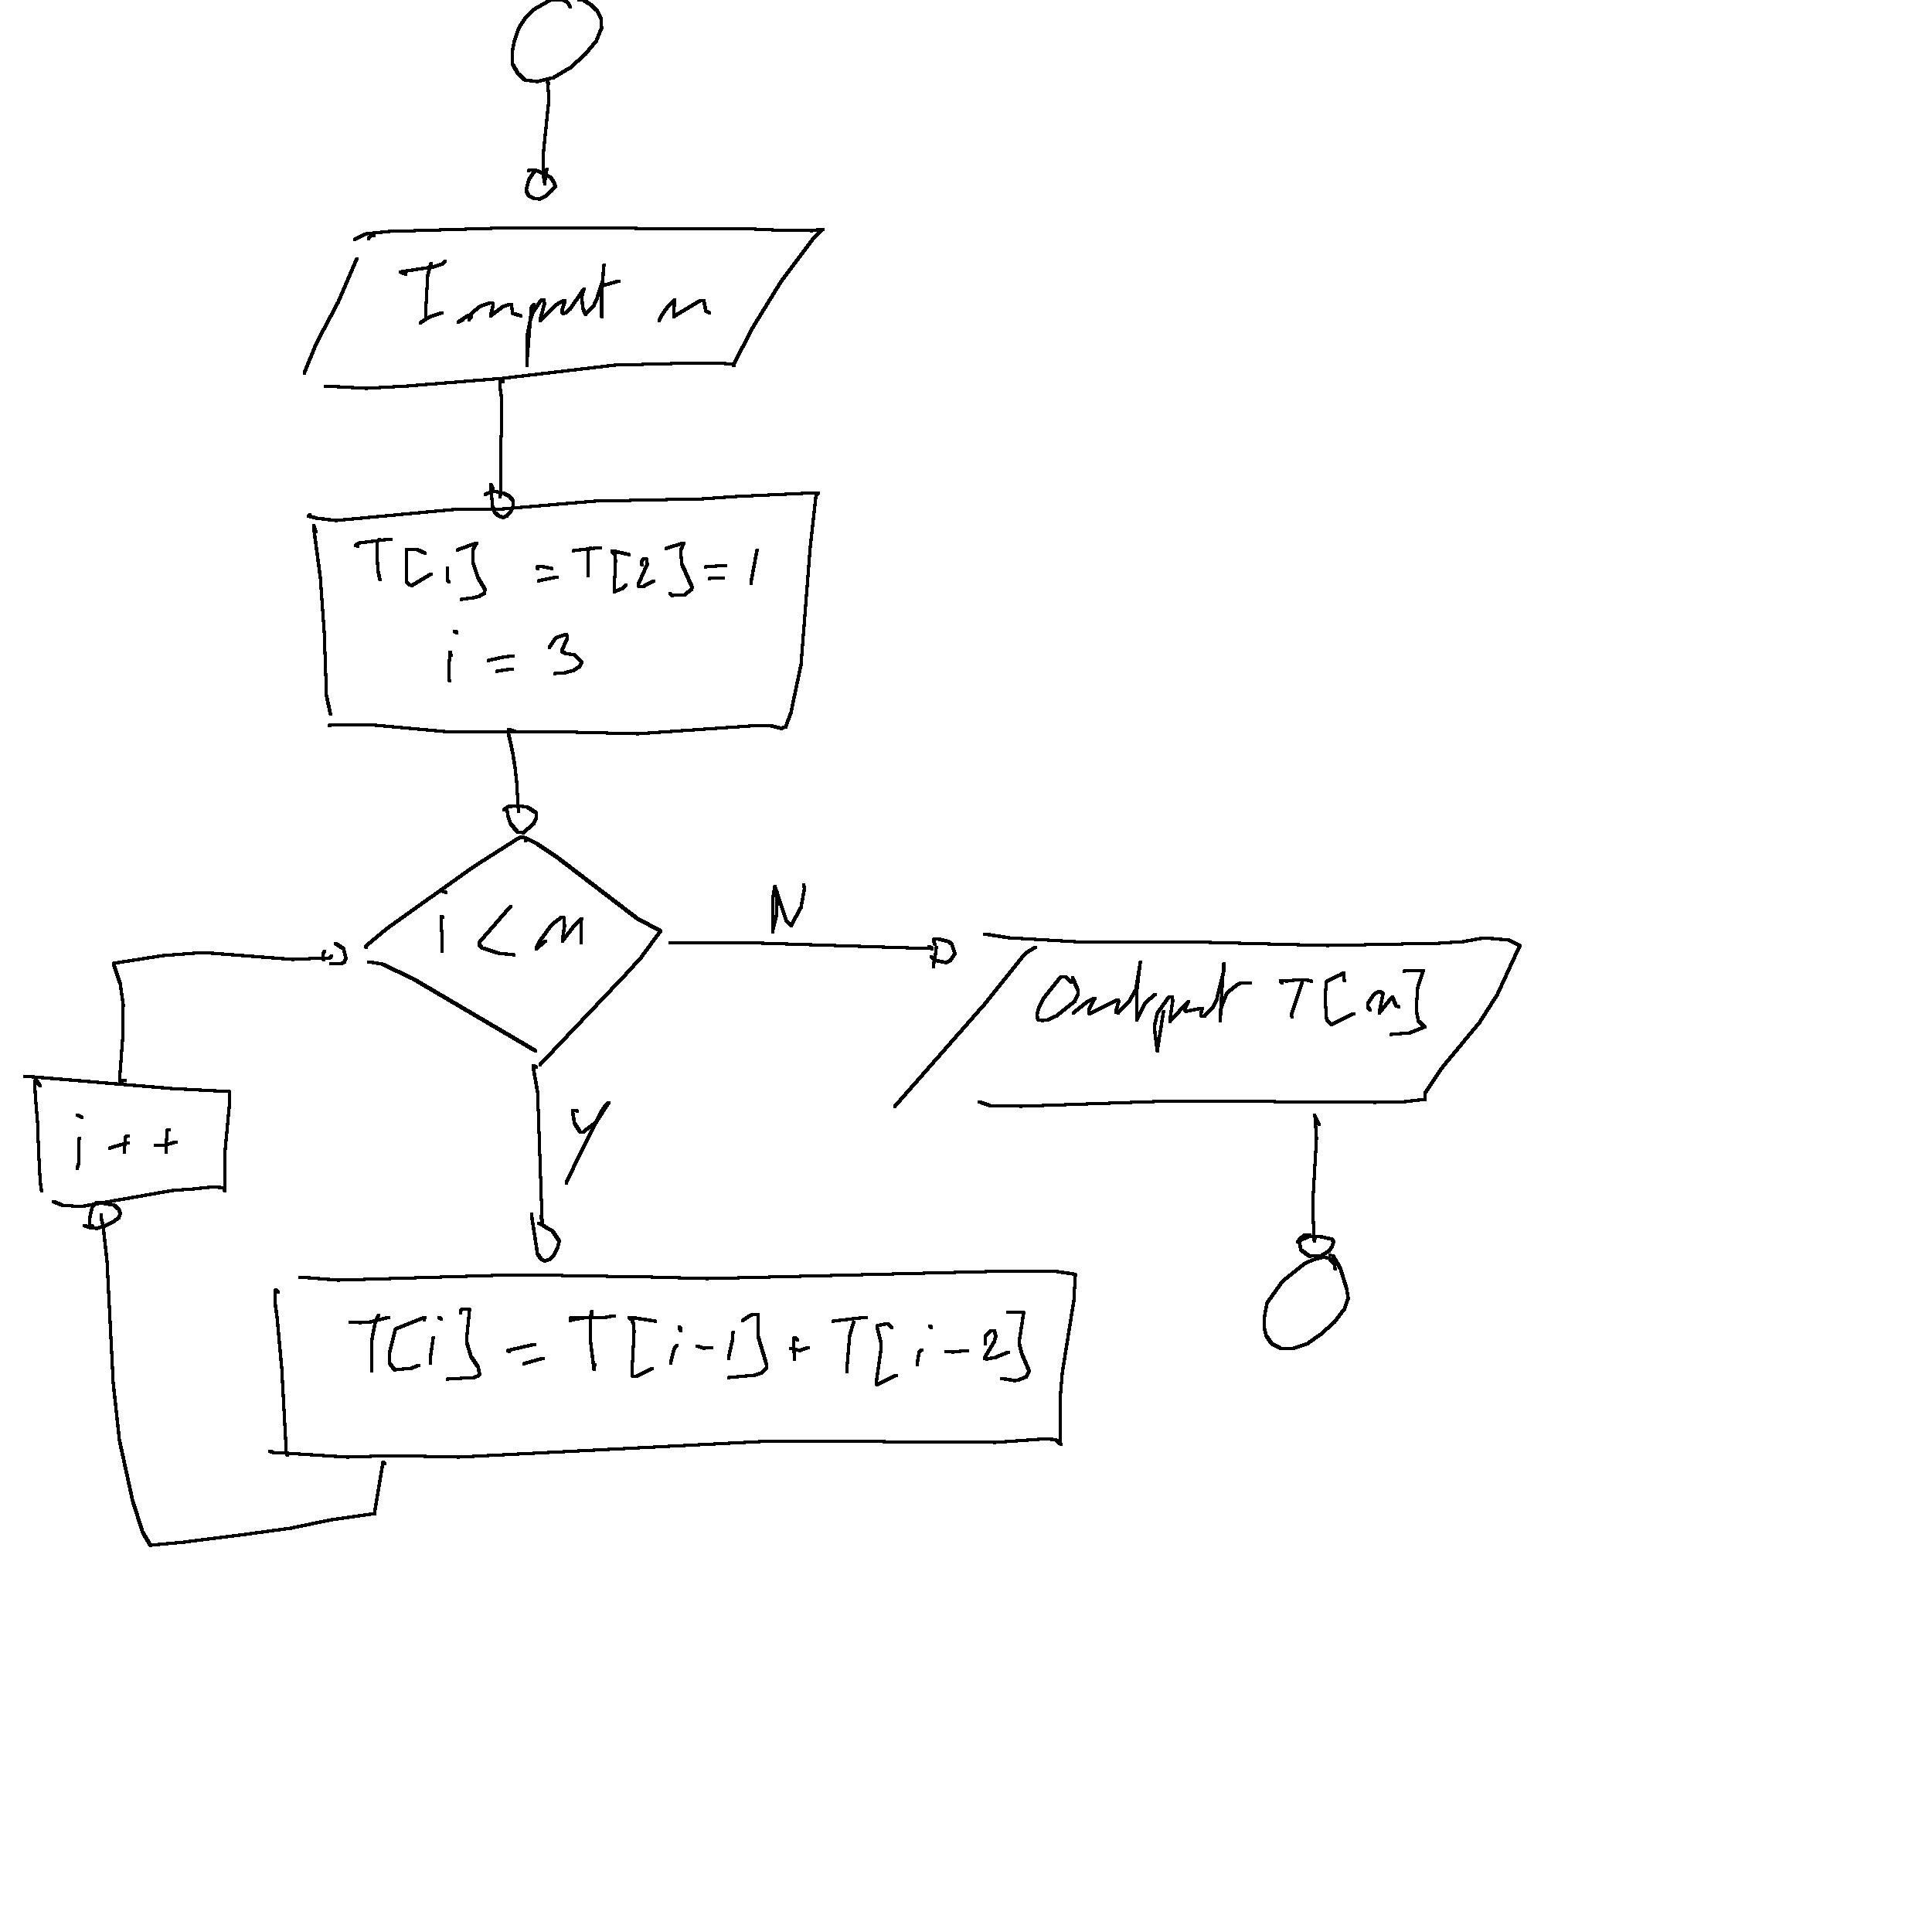 Input n
T[i] = T[2] = 1
i = 3
i < n
N
Output T[n]
Y
i++
T[i] = T[i-1] + T[i-2]